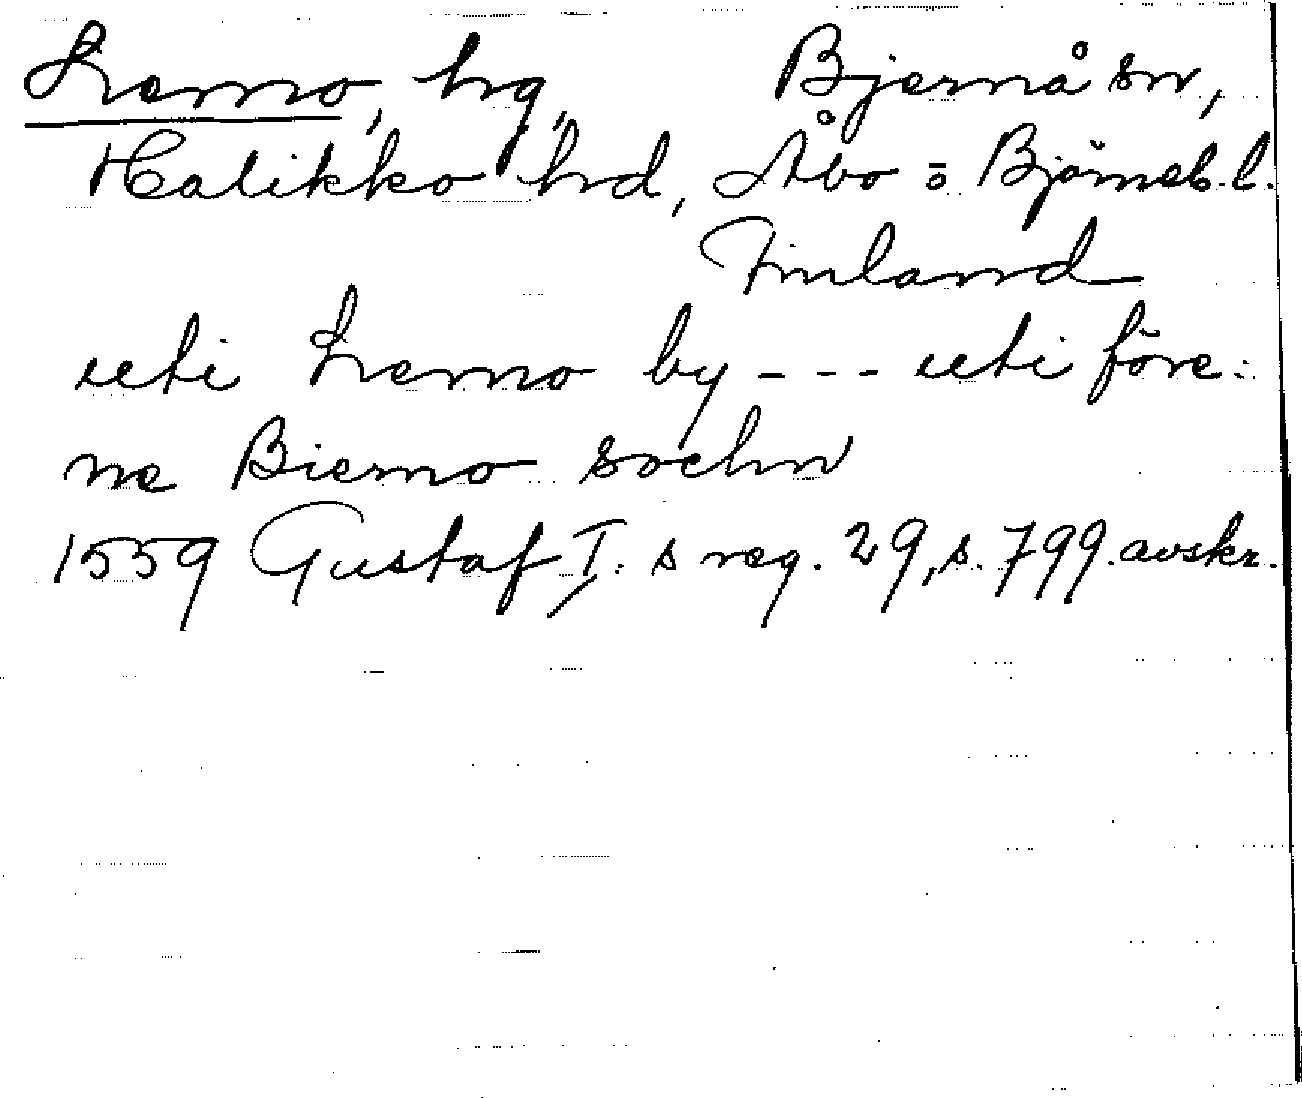 Lemo, hg, Bjernå sn,
Halikko hd, Åbo = Björneb. l.
Finland
uti Lemo by - - - uti före:
ne Biemo sochn
1559 Gustaf I: s reg. 29, s. 799. avskr.